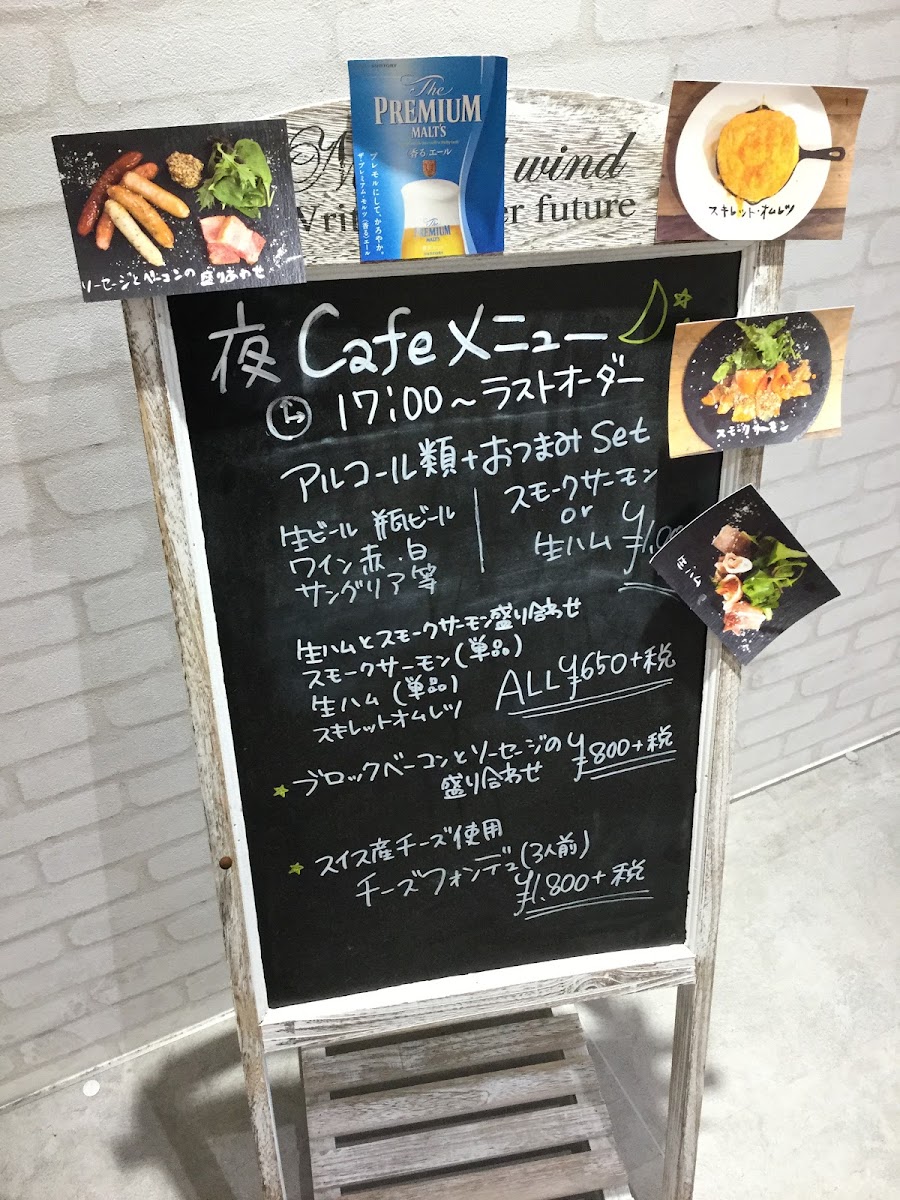 The
PREMIUM
MALT'S
香るエール
プレモルにして、かろやか。
ザ・プレミアム・モルツ〈香る〉エール
PREMIUM
MALT'S
wind
er future
ソーセージとベーコンの盛りあわせ
スキレット・オムレツ
スモークサーモン
生ハム
夜Cafeメニュー
17:00~ラストオーダー
アルコール類+おつまみSet
生ビール 瓶ビール
ワイン赤・白
サングリア等
スモークサーモン
or
生ハム
生ハムとスモークサーモン盛り合わせ
スモークサーモン(単品)
生ハム(単品)
スキレットオムレツ
ALL ¥650+税
ブロックベーコンとソーセージの
盛り合わせ
¥800+税
スイス産チーズ使用
チーズフォンデュ(3人前)
¥1.800+税